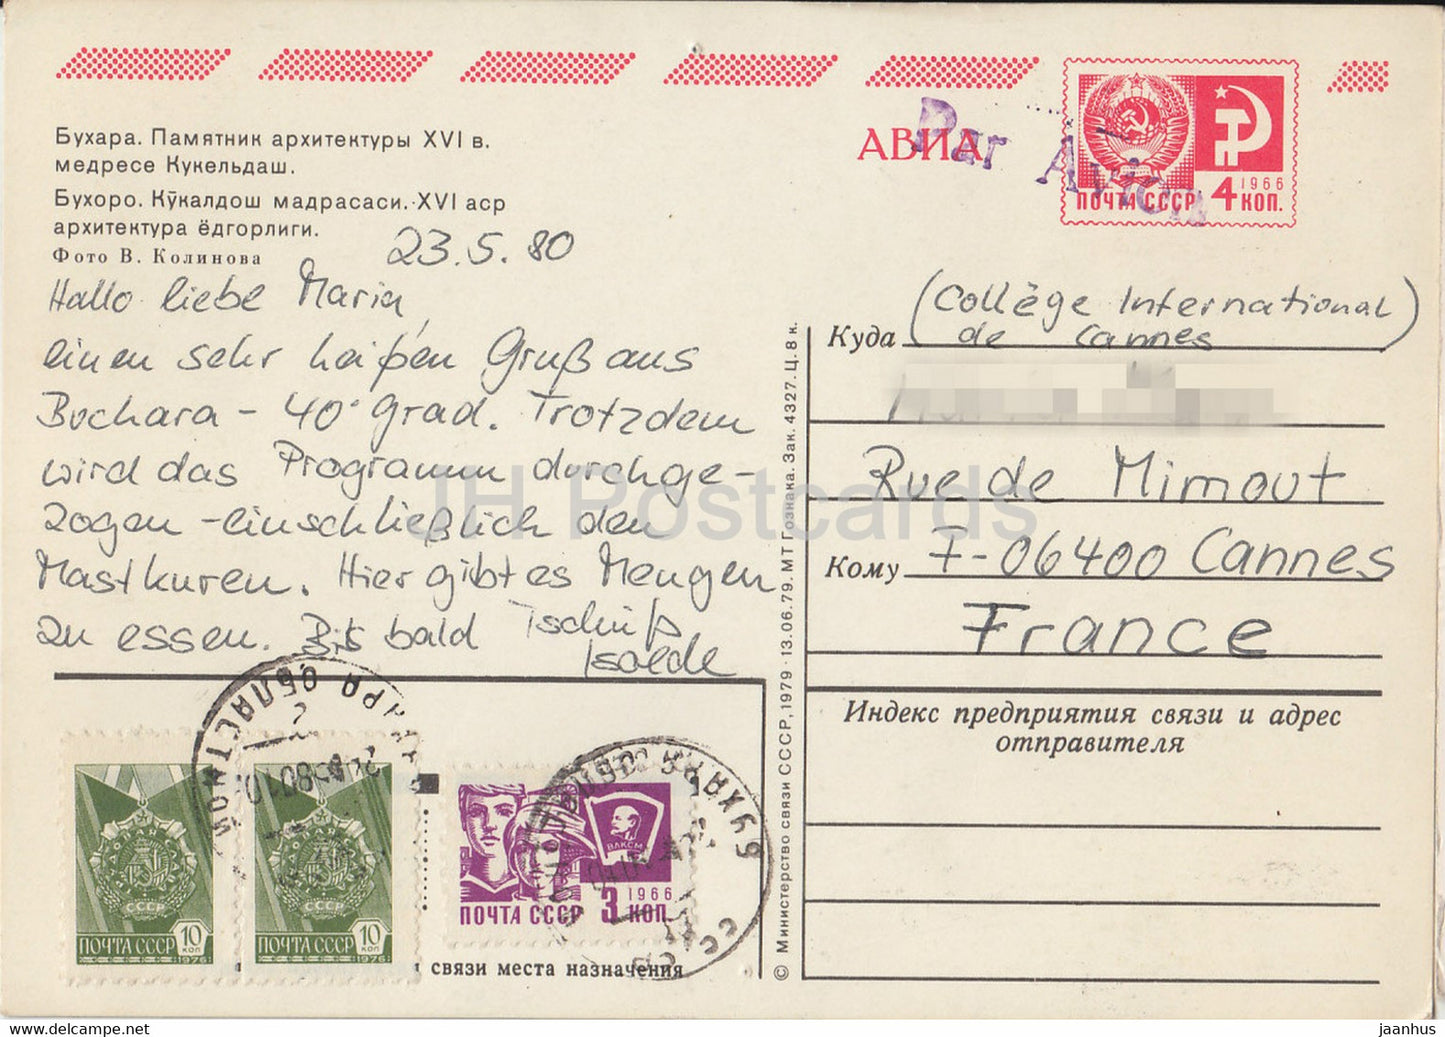 Бухара. Памятник архитектуры XVI в.
медресе Кукельдаш.
Бухоро. Кӯкалдош мадрасаси. XVI аср
архитектура ёдгорлиги.
Фото В. Колинова
23.5.80
Hallo liebe Maria,
einen sehr heißen Gruß aus
Buchara - 40° Grad. Trotzdem
wird das Programm durchge-
zogen - einschließlich den
Mastkuren. Hier gibt es Mengen
zu essen. Bis bald Tschüß
Isolde
АВИА
Par Avion
ПОЧТА СССР 4 КОП. 1966
Куда (Collège International)
de Cannes
Rue de Mimout
Кому F-06400 Cannes
France
Индекс предприятия связи и адрес
отправителя
© Министерство связи СССР, 1979 · 13.06.79. МТ Гознака. Зак. 4327. Ц. 8 к.
БУХАРА ОБЛАСТНОЙ
СССР
ПОЧТА СССР 10 КОП 1976
СССР
ПОЧТА СССР 10 КОП 1976
ВЛКСМ
1966
ПОЧТА СССР 3 КОП.
БУХАРА
СССР
связи места назначения
JH Postcards
hippostcard.com/store/jh-postcards
jaanhus